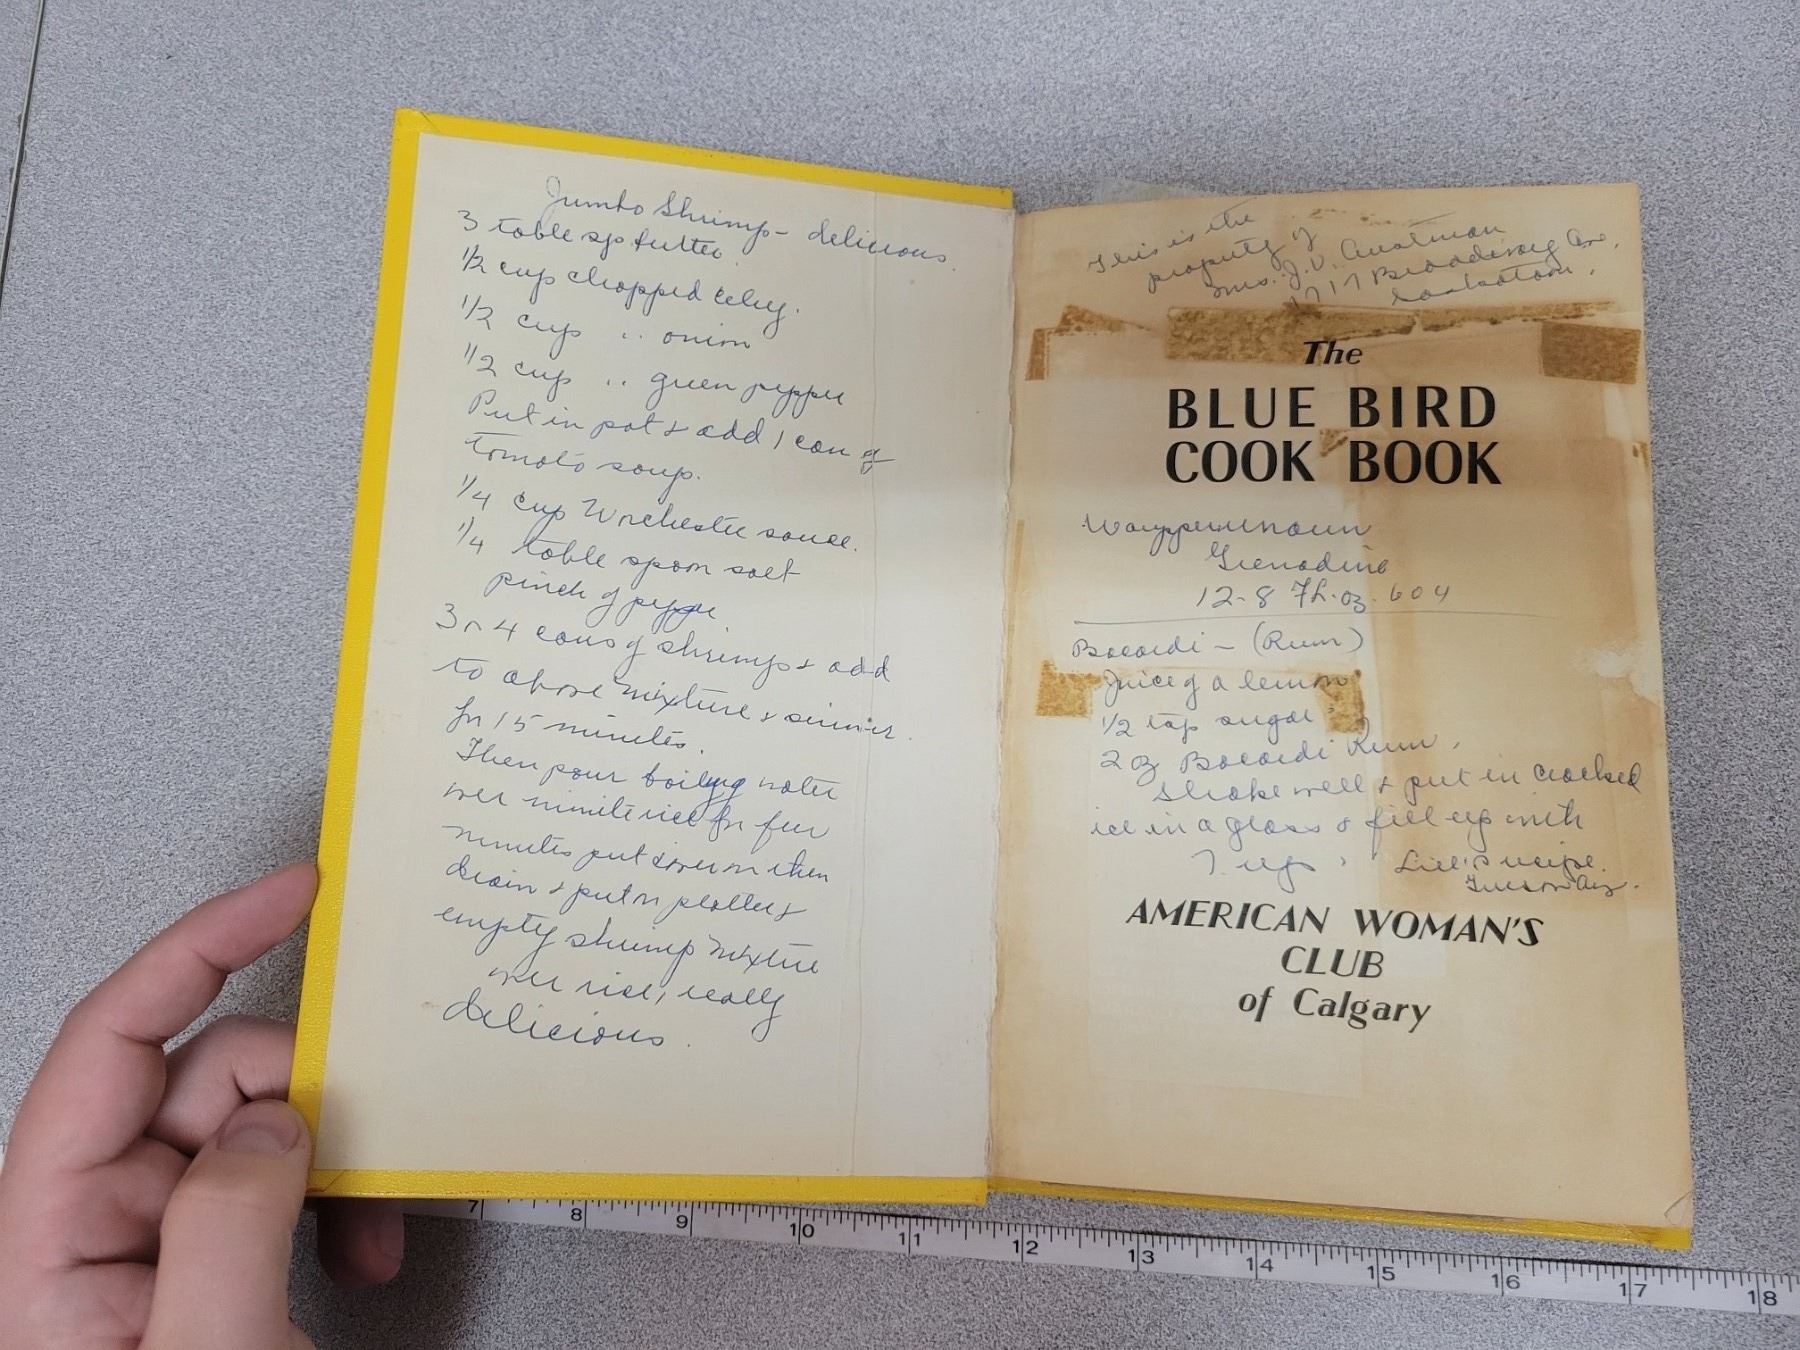 Jumbo Shrimp - delicious.
3 table sp butter.
1/2 cup chopped celery.
1/2 cup " onion
1/2 cup " green pepper
Put in pot & add 1 can of
tomato soup.
1/4 cup Worchester sauce.
1/4 table spoon salt
pinch of pepper
3 or 4 cans of shrimps & add
to above mixture & simmer
for 15 minutes.
Then pour boiling water
over minute rice for few
minutes put cover on then
drain & put on platter &
empty shrimp mixture
over rice, really
delicious.
This is the
property of
Mrs. J. V. Austman
1717 Broadway Ave.
Saskatoon.
The
BLUE BIRD
COOK BOOK
Grenadine
12-8 Fl. oz. 604
Bacardi - (Rum)
Juice of a lemon
1/2 tsp sugar
2 oz Bacardi Rum.
Shake well & put in cracked
ice in a glass & fill up with
7 up. recipe.
Tucson Ariz.
AMERICAN WOMAN'S
CLUB
of Calgary
7 8 9 10 11 12 13 14 15 16 17 18